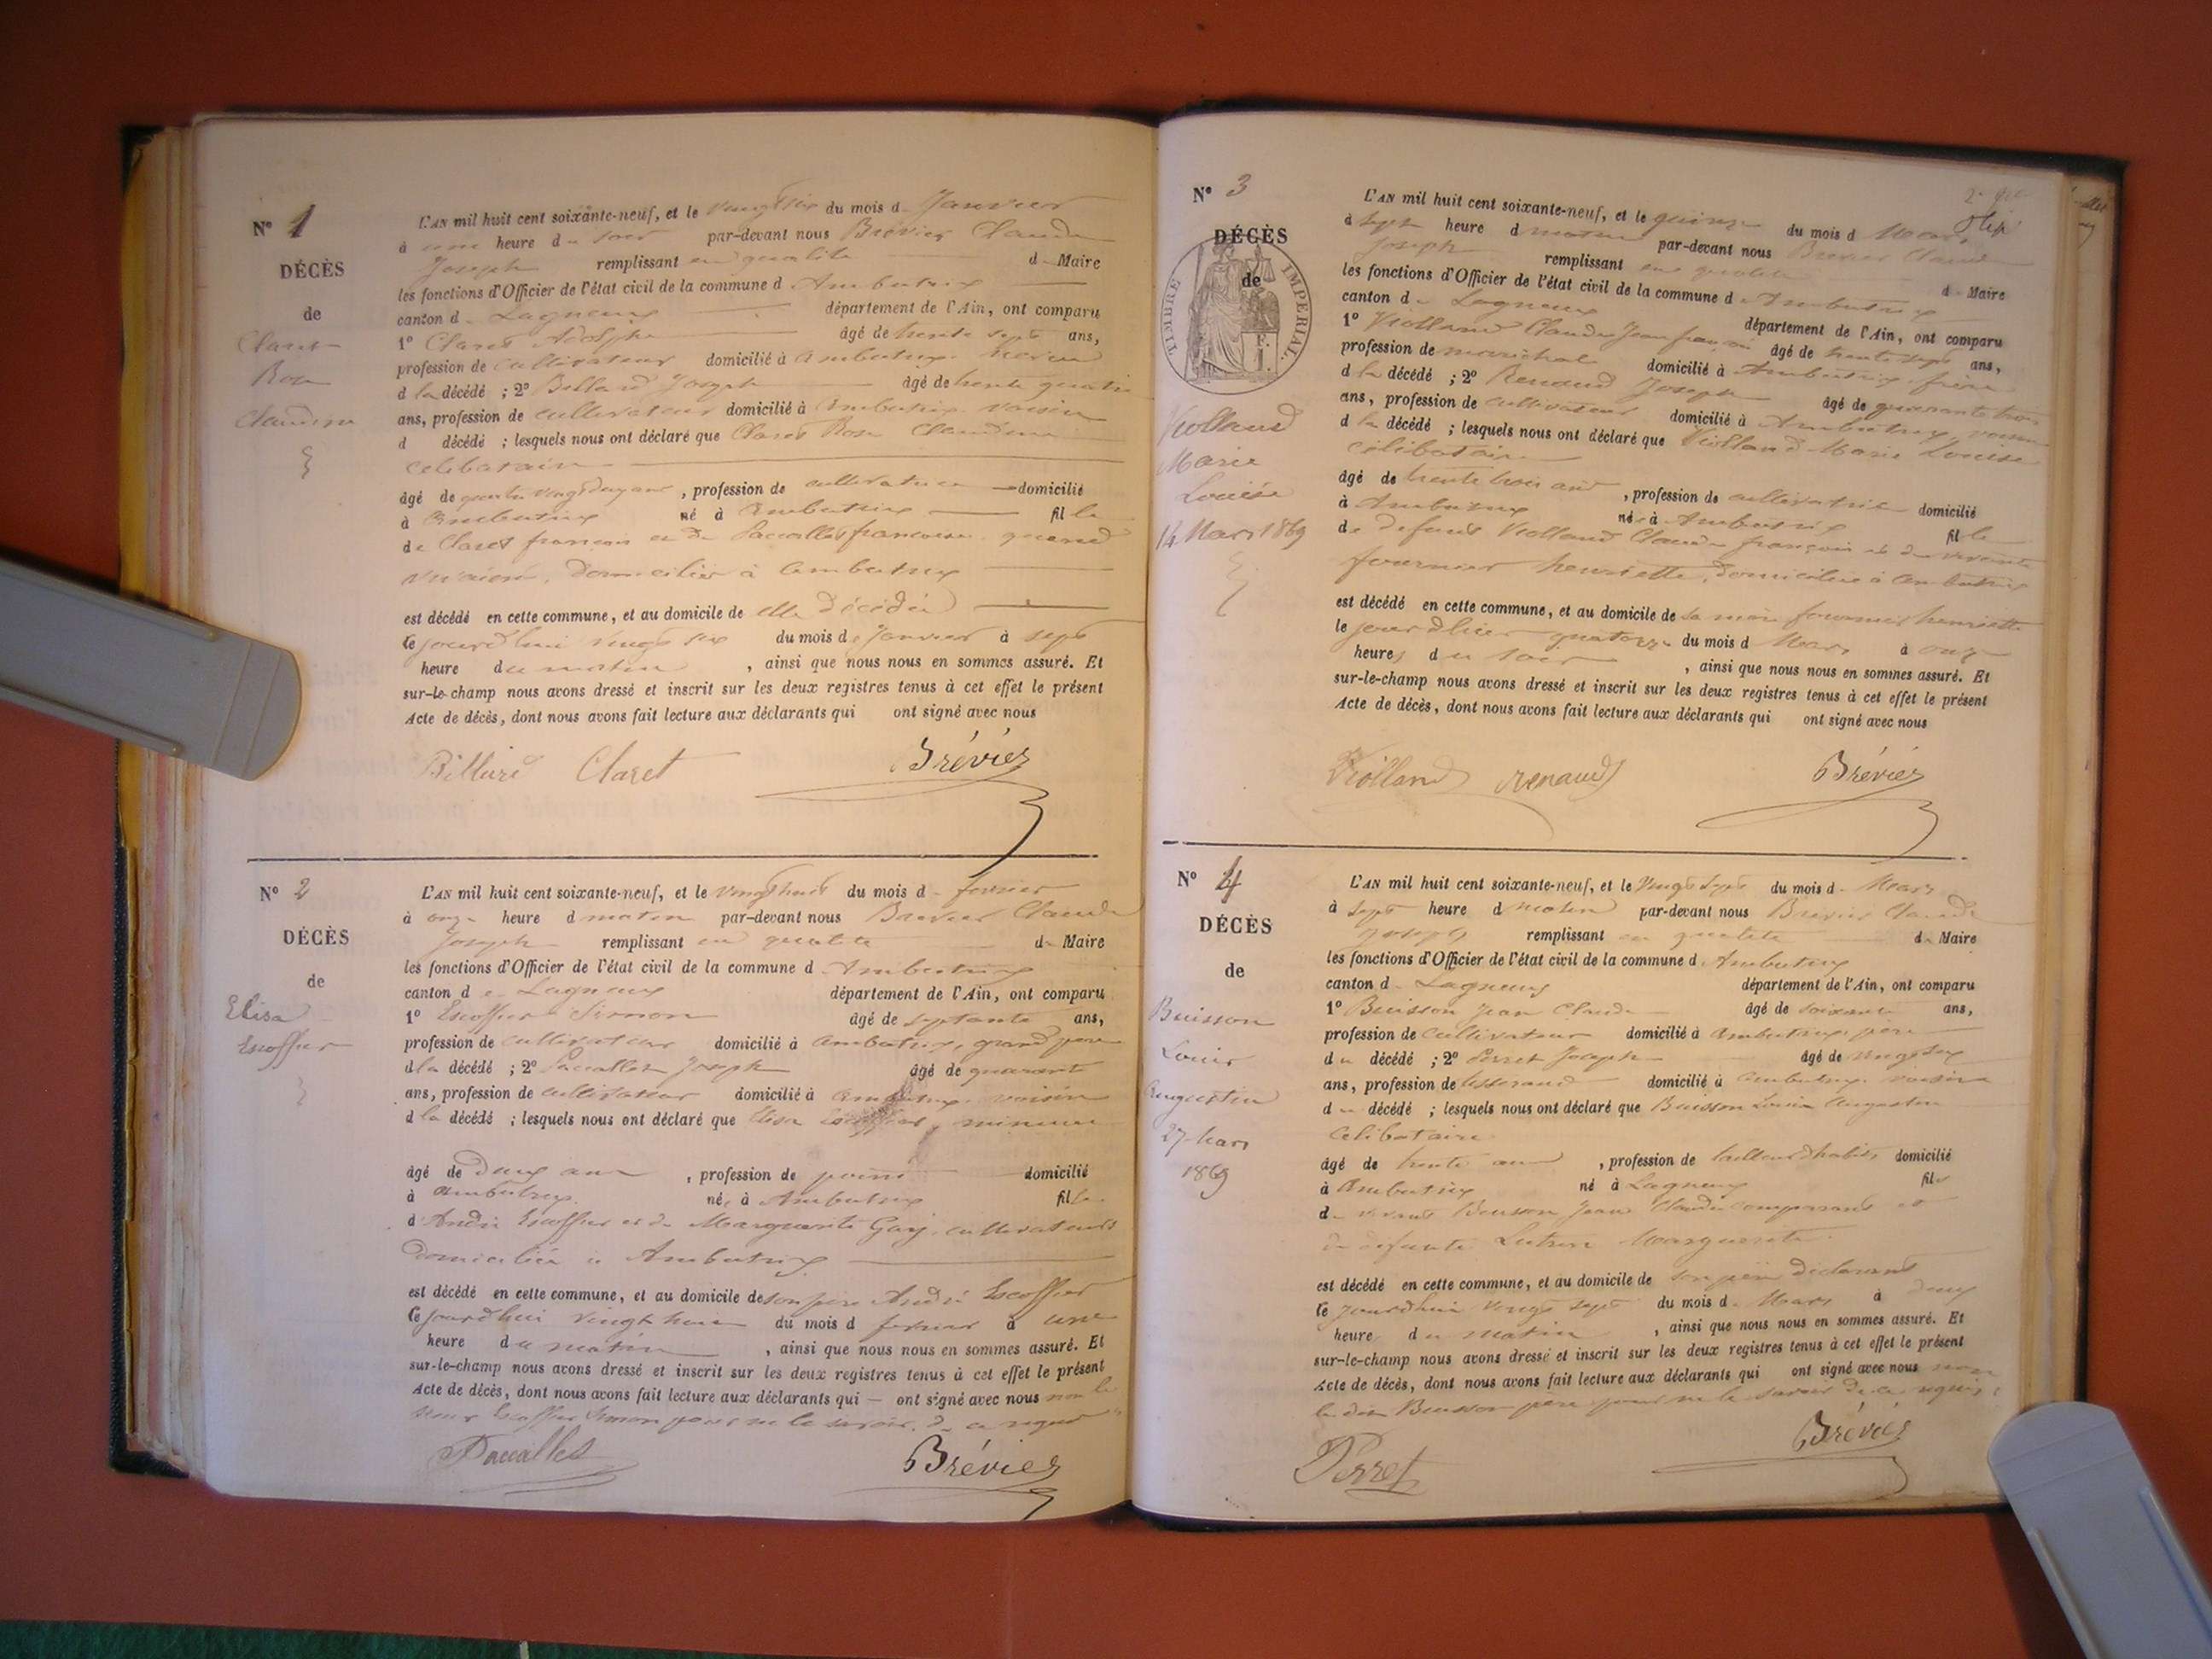 N° 1
DÉCÈS
de
Claret
Rose
Claudine
L'AN mil huit cent soixante-neuf, et le vingt six du mois de Janvier
à une heure du soir par-devant nous Brévier Claude
Joseph remplissant en qualité de Maire
les fonctions d'Officier de l'état civil de la commune d'Ambutrix
canton de Lagneux département de l'Ain, ont comparu
1° Claret Adolphe âgé de trente sept ans,
profession de cultivateur domicilié à Ambutrix neveu
d la décédé ; 2° Billard Joseph âgé de trente quatre
ans, profession de cultivateur domicilié à Ambutrix voisin
d décédé ; lesquels nous ont déclaré que Claret Rose Claudine
célibataire
âgé de quatre vingt deux ans, profession de cultivatrice domicilié
à Ambutrix né à Ambutrix fille
de Claret françois et de Pacallet françoise quand
vivaient, domiciliés à Ambutrix
est décédé en cette commune, et au domicile de elle décédée
le jourd'hui vingt six du mois de Janvier à sept
heure du matin, ainsi que nous nous en sommes assuré. Et
sur-le-champ nous avons dressé et inscrit sur les deux registres tenus à cet effet le présent
Acte de décès, dont nous avons fait lecture aux déclarants qui ont signé avec nous
Billard Claret Brévier
N° 2
DÉCÈS
de
Elisa
Escoffier
L'AN mil huit cent soixante-neuf, et le vingt huit du mois de fevrier
à onze heure d matin par-devant nous Brévier Claude
Joseph remplissant en qualité de Maire
les fonctions d'Officier de l'état civil de la commune d'Ambutrix
canton de Lagneux département de l'Ain, ont comparu
1° Escoffier Simon âgé de septante ans,
profession de cultivateur domicilié à Ambutrix, grand père
d la décédé ; 2° Pacallet Joseph âgé de quarante
ans, profession de cultivateur domicilié à Ambutrix voisin
d la décédé ; lesquels nous ont déclaré que Elisa Escoffier, mineure
âgé de deux ans, profession de domicilié
à Ambutrix né à Ambutrix fille
d'André Escoffier et de Marguerite Gay, cultivateurs
domiciliés à Ambutrix
est décédé en cette commune, et au domicile de son père André Escoffier
le jourd'hui vingt huit du mois d fevrier à une
heure du matin, ainsi que nous nous en sommes assuré. Et
sur-le-champ nous avons dressé et inscrit sur les deux registres tenus à cet effet le présent
Acte de décès, dont nous avons fait lecture aux déclarants qui — ont signé avec nous non le
sieur Escoffier Simon pour ne le savoir, de ce requis
Pacallet Brévier
N° 3
DÉCÈS
de
TIMBRE IMPÉRIAL
Violland
Marie
Louise
14 Mars 1869
L'AN mil huit cent soixante-neuf, et le quinze du mois d Mars
à sept heure d matin par-devant nous Brévier Claude
Joseph remplissant en qualité de Maire
les fonctions d'Officier de l'état civil de la commune d'Ambutrix
canton de Lagneux département de l'Ain, ont comparu
1° Violland Claude Jean françois âgé de trente sept ans,
profession de maréchal domicilié à Ambutrix frère
d la décédé ; 2° Renaud Joseph âgé de quarante trois
ans, profession de cultivateur domicilié à Ambutrix, voisin
d la décédé ; lesquels nous ont déclaré que Violland Marie Louise
célibataire
âgé de trente trois ans, profession de cultivatrice domicilié
à Ambutrix née à Ambutrix fille
de defunt Violland Claude françois et de vivante
fournier henriette, domiciliée à Ambutrix
est décédé en cette commune, et au domicile de sa mère fournier henriette
le jour d'hier quatorze du mois d Mars à onze
heures du soir, ainsi que nous nous en sommes assuré. Et
sur-le-champ nous avons dressé et inscrit sur les deux registres tenus à cet effet le présent
Acte de décès, dont nous avons fait lecture aux déclarants qui ont signé avec nous
Violland Renaud Brévier
N° 4
DÉCÈS
de
Buisson
Louis
Augustin
27 Mars
1869
L'AN mil huit cent soixante-neuf, et le vingt sept du mois de Mars
à sept heure d matin par-devant nous Brévier Claude
Joseph remplissant en qualité de Maire
les fonctions d'Officier de l'état civil de la commune d'Ambutrix
canton de Lagneux département de l'Ain, ont comparu
1° Buisson Jean Claude âgé de soixante ans,
profession de cultivateur domicilié à Ambutrix père
du décédé ; 2° Perret Joseph âgé de vingt six
ans, profession de tisserand domicilié à Ambutrix voisin
du décédé ; lesquels nous ont déclaré que Buisson Louis Augustin
célibataire
âgé de trente ans, profession de tailleur d'habits domicilié
à Ambutrix né à Lagneux fils
de vivant Buisson Jean Claude comparant et
de défunte Marguerite
est décédé en cette commune, et au domicile de son père déclarant
le jourd'hui vingt sept du mois de Mars à deux
heure du matin, ainsi que nous nous en sommes assuré. Et
sur-le-champ nous avons dressé et inscrit sur les deux registres tenus à cet effet le présent
Acte de décès, dont nous avons fait lecture aux déclarants qui ont signé avec nous non
le dit Buisson père pour ne le savoir de ce requis
Perret Brévier